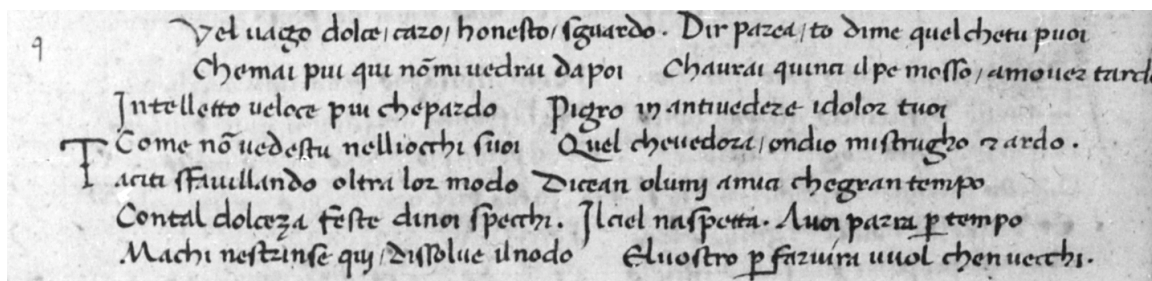 9
Vel uago dolce/caro/honesto/sguardo. Dir parea/to dime quel chetu puoi
Chemai piu qui nōmi uedrai dapoi Chaurai quinci il pe mosso/amouer tardo
Intelletto ueloce piu chepardo Pigro in antiuedere idolor tuoi
Come nō uedestu nelliocchi suoi Quel cheuedora/ondio mistrugho & ardo.
Taciti sfauillando oltra lor modo Dicean olumi amici chegran tempo
Contal dolceza feste dinoi specchi. Ilciel naspetta. Auoi parra p tempo
Machi nestrinse qui/dissolue ilnodo Eluostro p farui ira uuol chen uecchi.